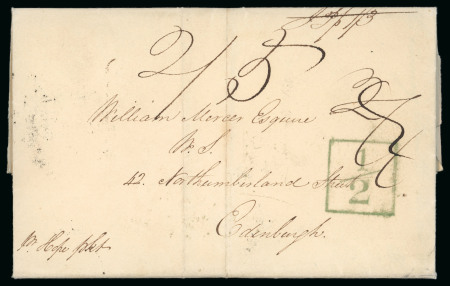 2/5
William Mercer Esquire
W.S.
42. Northumberland Street
Edinburgh.
pr Hope pkt
1/2